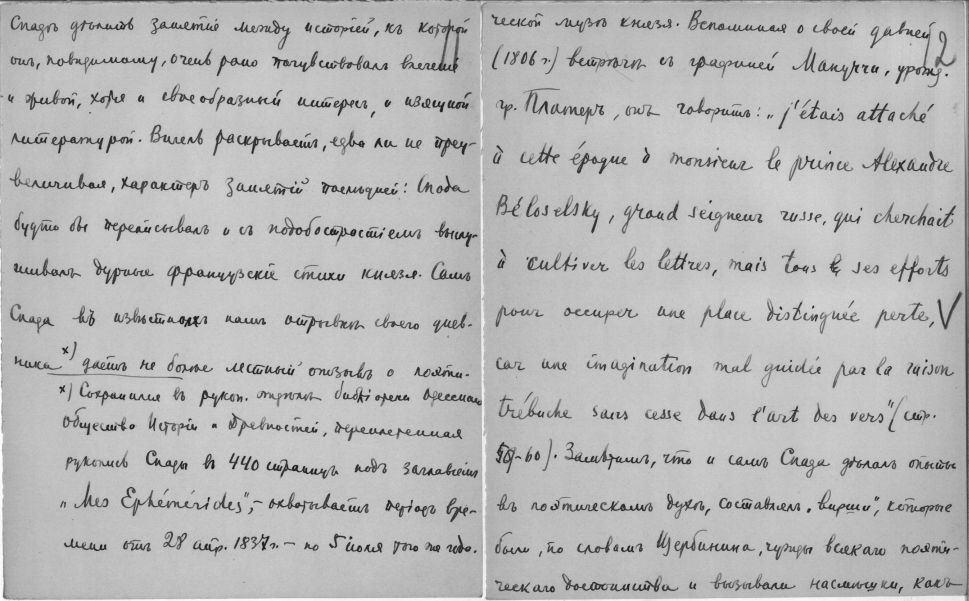 Спадъ дѣлитъ занятія между исторіей, къ которой
онъ, повидимому, очень рано почувствовалъ влеченіе
и живой, хотя и своеобразный интересъ, и изящной
литературой. Вигель раскрываетъ, едва ли не преу-
величивая, характеръ занятій послѣдней: Спада
будто бы переписывалъ и съ подобострастіемъ выслу-
шивалъ дурные французскіе стихи князя. Самъ
Спада въ извѣстныхъ намъ отрывкахъ своего днев-
ника х) даетъ не болѣе лестный отзывъ о поэти-
х) Сохранился въ рукоп. отдѣлѣ библіотеки Одесскаго
Общества Исторіи и Древностей, переплетенная
рукопись Спады въ 440 страницъ подъ заглавіемъ
„Mes Ephémérides", - охватываетъ періодъ вре-
мени отъ 28 апр. 1837 г. - по 5 іюля того же года.
2
ческой музѣ князя. Вспоминая о своей давней
(1806 г.) встрѣчѣ съ графиней Мануччи, урожд.
гр. Платеръ, онъ говоритъ: „j'étais attaché
à cette époque à monsieur le prince Alexandre
Béloselsky, grand seigneur russe, qui cherchait
à cultiver les lettres, mais tous ses efforts
pour occuper une place distinguée perte,
car une imagination mal guidée par la raison
trébuche sans cesse dans l'art des vers" (стр.
59-60). Замѣтимъ, что и самъ Спада дѣлалъ опыты
въ поэтическомъ духѣ, составлялъ „вирши", которые
были, по словамъ Щербинина, чужды всякаго поэти-
ческаго достоинства и вызывали насмѣшки, какъ